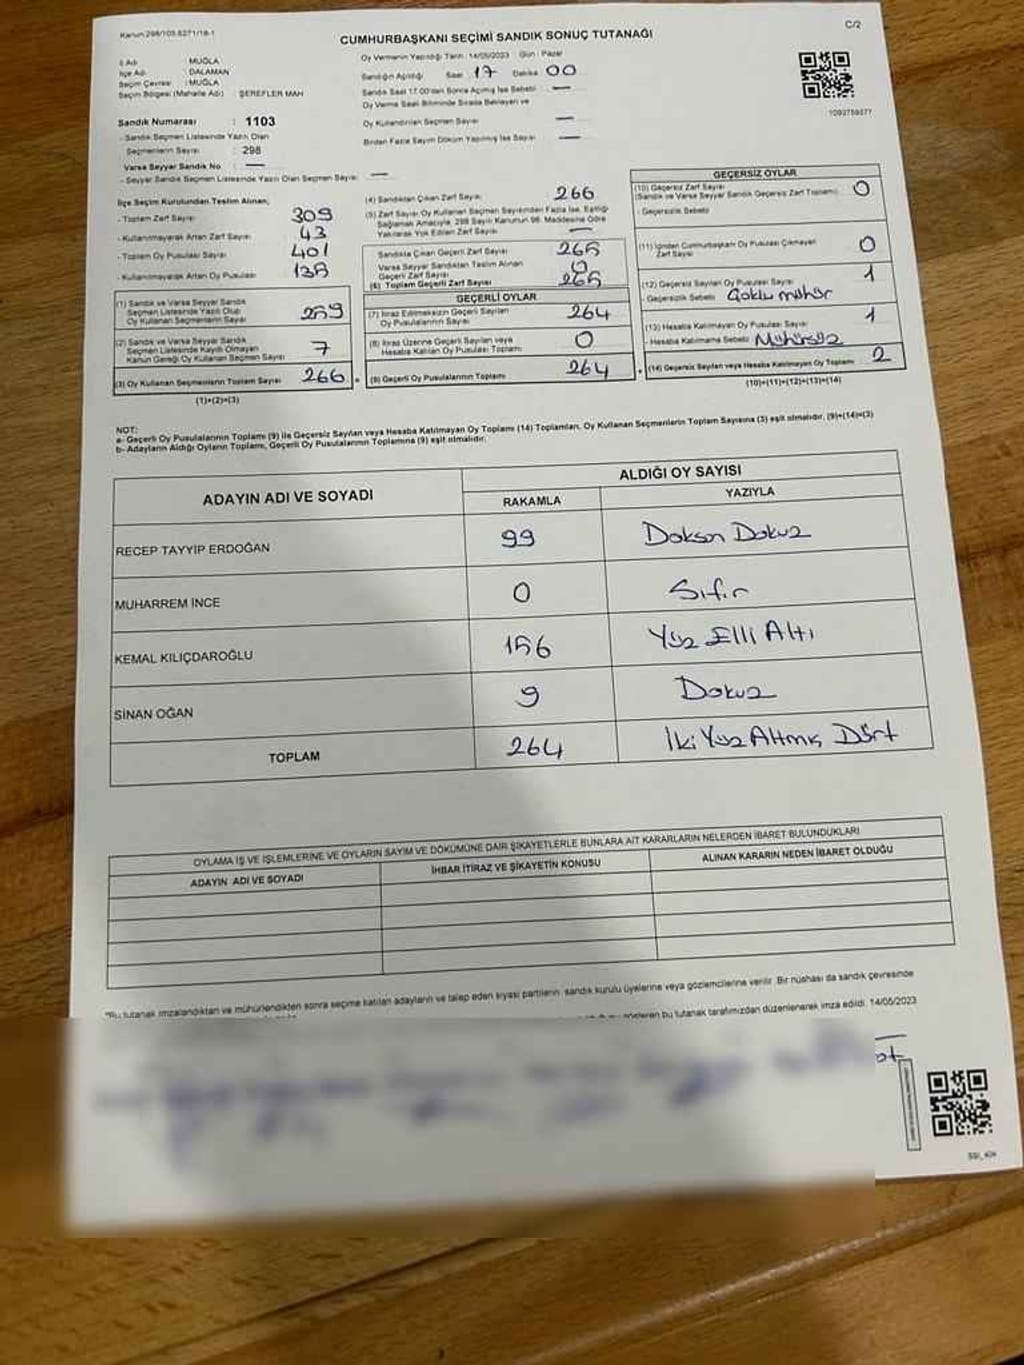 Kanun:298/105,6271/18-1
C/2
CUMHURBAŞKANI SEÇİMİ SANDIK SONUÇ TUTANAĞI
İl Adı : MUĞLA
İlçe Adı : DALAMAN
Seçim Çevresi : MUĞLA
Seçim Bölgesi (Mahalle Adı) : ŞEREFLER MAH
Sandık Numarası : 1103
- Sandık Seçmen Listesinde Yazılı Olan
Seçmenlerin Sayısı : 298
Varsa Seyyar Sandık No : —
- Seyyar Sandık Seçmen Listesinde Yazılı Olan Seçmen Sayısı : —
Oy Vermenin Yapıldığı Tarih : 14/05/2023 Gün : Pazar
Sandığın Açıldığı Saat 17 Dakika 00
Sandık Saat 17.00'den Sonra Açılmış İse Sebebi —
Oy Verme Saati Bitiminde Sırada Bekleyen ve
Oy Kullandırılan Seçmen Sayısı —
Birden Fazla Sayım Döküm Yapılmış İse Sayısı —
1093759377
İlçe Seçim Kurulundan Teslim Alınan;
- Toplam Zarf Sayısı 309
- Kullanılmayarak Artan Zarf Sayısı 43
- Toplam Oy Pusulası Sayısı 401
- Kullanılmayarak Artan Oy Pusulası 135
(1) Sandık ve Varsa Seyyar Sandık
Seçmen Listesinde Yazılı Olup
Oy Kullanan Seçmenlerin Sayısı 259
(2) Sandık ve Varsa Seyyar Sandık
Seçmen Listesinde Kayıtlı Olmayan
Kanun Gereği Oy Kullanan Seçmen Sayısı 7
(3) Oy Kullanan Seçmenlerin Toplam Sayısı 266
(1)+(2)=(3)
(4) Sandıktan Çıkan Zarf Sayısı 266
(5) Zarf Sayısı Oy Kullanan Seçmen Sayısından Fazla İse, Eşitliği
Sağlamak Amacıyla, 298 Sayılı Kanunun 98. Maddesine Göre
Yakılarak Yok Edilen Zarf Sayısı —
Sandıkta Çıkan Geçerli Zarf Sayısı 265
Varsa Seyyar Sandıktan Teslim Alınan
Geçerli Zarf Sayısı 0
(6) Toplam Geçerli Zarf Sayısı 265
GEÇERLİ OYLAR
(7) İtiraz Edilmeksizin Geçerli Sayılan
Oy Pusulalarının Sayısı 264
(8) İtiraz Üzerine Geçerli Sayılan veya
Hesaba Katılan Oy Pusulaları Toplamı 0
(9) Geçerli Oy Pusulalarının Toplamı 264
GEÇERSİZ OYLAR
(10) Geçersiz Zarf Sayısı
(Sandık ve Varsa Seyyar Sandık Geçersiz Zarf Toplamı) 0
- Geçersizlik Sebebi
(11) İçinden Cumhurbaşkanı Oy Pusulası Çıkmayan
Zarf Sayısı 0
(12) Geçersiz Sayılan Oy Pusulası Sayısı 1
- Geçersizlik Sebebi Çoklu mühür
(13) Hesaba Katılmayan Oy Pusulası Sayısı 1
- Hesaba Katılmama Sebebi Mühürsüz
(14) Geçersiz Sayılan veya Hesaba Katılmayan Oy Toplamı 2
(10)+(11)+(12)+(13)=(14)
NOT:
a- Geçerli Oy Pusulalarının Toplamı (9) ile Geçersiz Sayılan veya Hesaba Katılmayan Oy Toplamı (14) Toplamları, Oy Kullanan Seçmenlerin Toplam Sayısına (3) eşit olmalıdır. (9)+(14)=(3)
b- Adayların Aldığı Oyların Toplamı, Geçerli Oy Pusulalarının Toplamına (9) eşit olmalıdır.
ADAYIN ADI VE SOYADI ALDIĞI OY SAYISI
RAKAMLA YAZIYLA
RECEP TAYYİP ERDOĞAN 99 Doksan Dokuz
MUHARREM İNCE 0 Sıfır
KEMAL KILIÇDAROĞLU 156 Yüz Elli Altı
SİNAN OĞAN 9 Dokuz
TOPLAM 264 İki Yüz Altmış Dört
OYLAMA İŞ VE İŞLEMLERİNE VE OYLARIN SAYIM VE DÖKÜMÜNE DAİR ŞİKAYETLERLE BUNLARA AİT KARARLARIN NELERDEN İBARET BULUNDUKLARI
ADAYIN ADI VE SOYADI İHBAR İTİRAZ VE ŞİKAYETİN KONUSU ALINAN KARARIN NEDEN İBARET OLDUĞU
"Bu tutanak imzalandıktan ve mühürlendikten sonra seçime katılan adayların ve talep eden siyasi partilerin sandık kurulu üyelerine veya gözlemcilerine verilir. Bir nüshası da sandık çevresinde
gösteren bu tutanak tarafımızdan düzenlenerek imza edildi. 14/05/2023